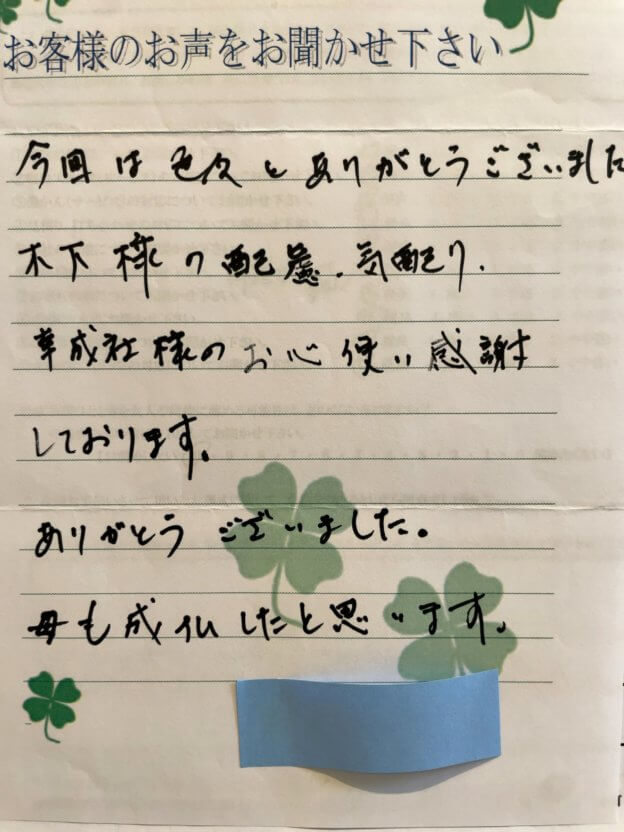 お客様のお声をお聞かせ下さい
今回は色々とありがとうございました
木下様の配慮、気配り、
華成社様のお心使い感謝
しております。
ありがとうございました。
母も成仏したと思います。